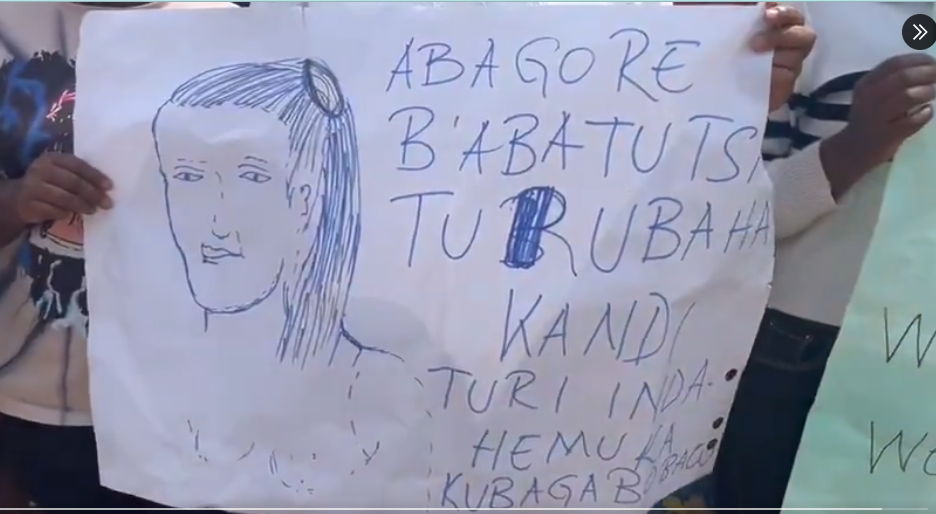 ABAGORE
B'ABATUTSI
TURUBAHA
KANDI
TURI INDA-
HEMUKA
KUBAGABO
W
WO